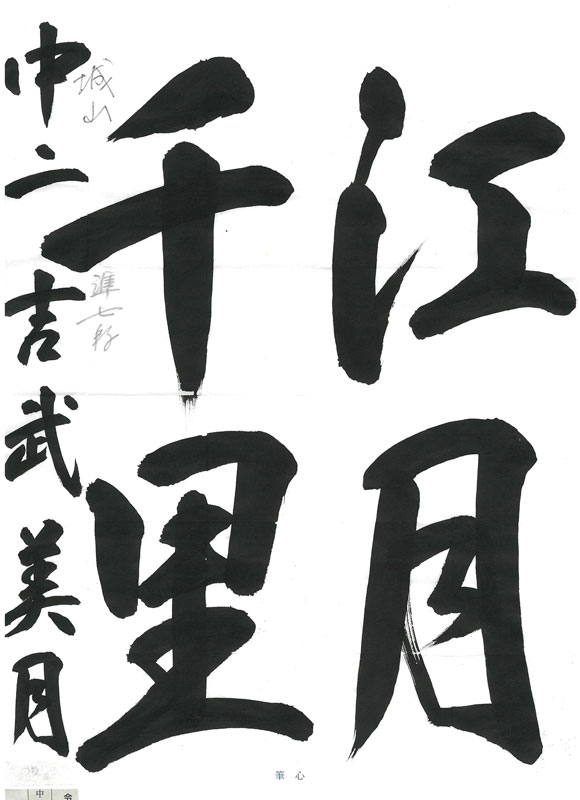 江月
千里
中二 吉武美月
城山
準七段
筆心
中
会